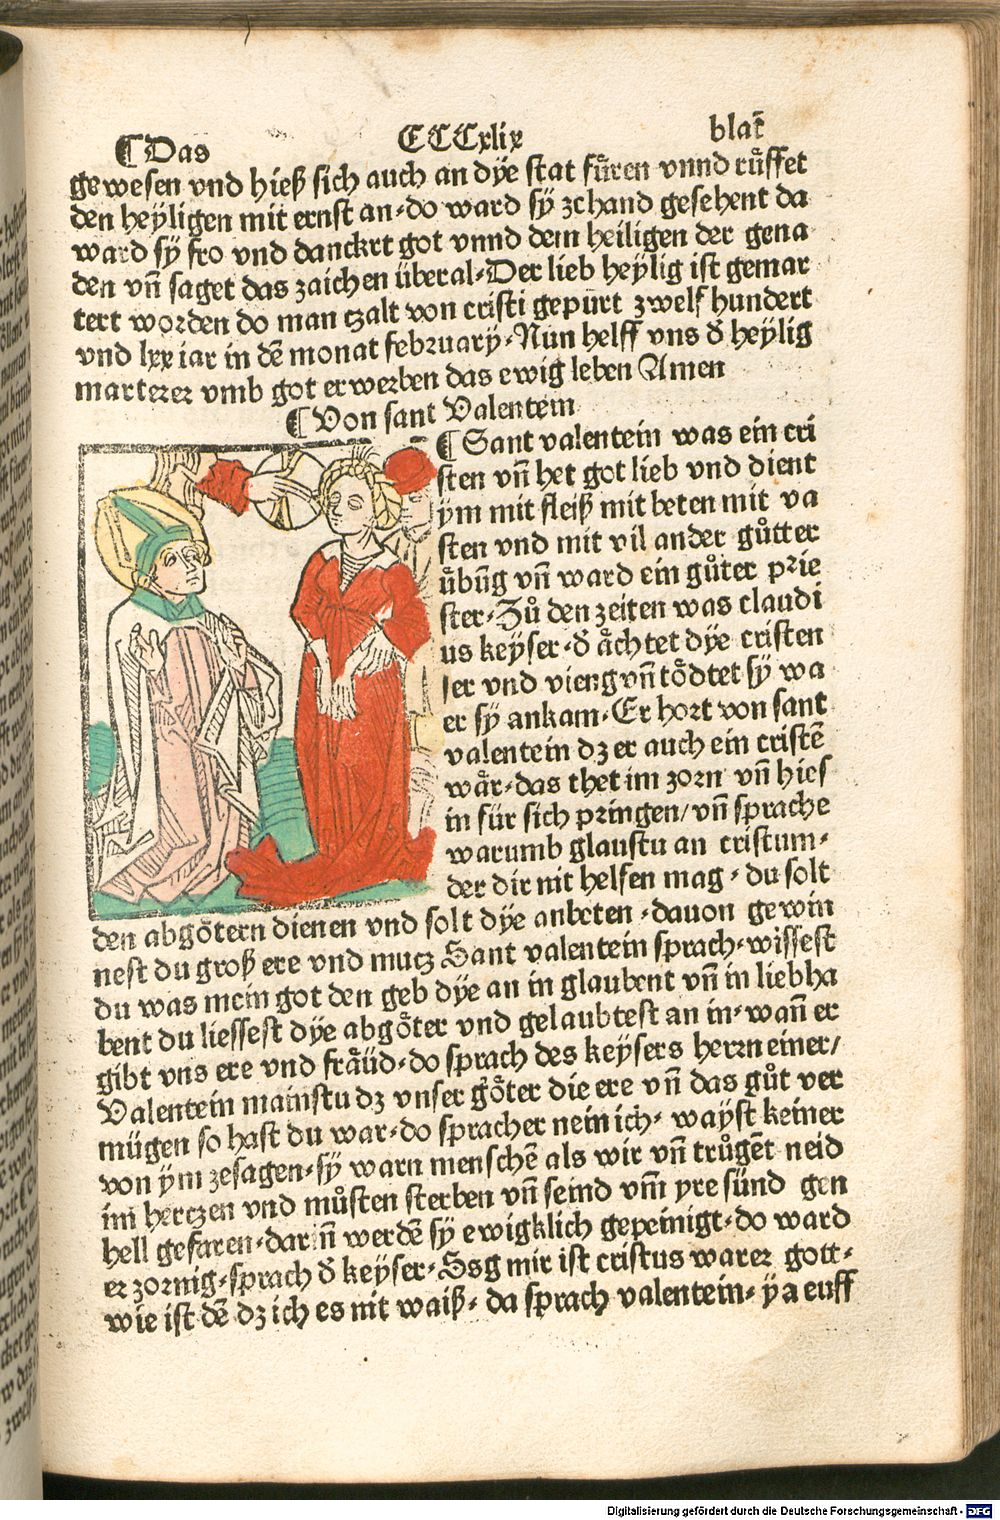 ¶ Das CCCxlix blat̄
gewesen vnd hieß sich auch an dye stat fuͤren vnnd ruͤffet
den heyligen mit ernst an. do ward sy zehand gesehent da
ward sy fro vnd danckrt got vnnd dem heiligen der gena
den vñ saget das zaichen überal. Der lieb heylig ist gemar
tert worden do man tzalt von cristi gepurt zwelf hundert
vnd lxx iar in dē monat february. Nun helff vns đ heylig
marterer vmb got erwerben das ewig leben Amen
¶ Von sant Valentein
¶ Sant valentein was ein cri
sten vñ het got lieb vnd dient
ym mit fleiß mit beten mit va
sten vnd mit vil ander guͦtter
uͤbūg vñ ward ein guͦter prie
ster. Zuͦ den zeiten was claudi
us keyser. đ aͤchtet dye cristen
ser vnd vieng vñ toͤdtet sy wa
er sy ankam. Er hort von sant
valentein dz er auch ein cristē
waͤr. das thet im zorn vñ hies
in für sich pringen/ vñ sprache
warumb glaustu an cristum.
der dir nit helfen mag. du solt
den abgoͤtern dienen vnd solt dye anbeten. dauon gewin
nest du groß ere vnd nutz Sant valentein sprach. wissest
du was mein got den geb dye an in glaubent vñ in liebha
bent du liessest dye abgoͤter vnd gelaubtest an in. wañ er
gibt vns ere vnd fraͤüd. do sprach des keysers herrn einer/
Valentein mainstu dz vnser goͤter die ere vñ das guͦt ver
mügen so hast du war. do sprach er nein ich. wayst keiner
von ym zesagen. sy warn menschē als wir vñ truͦgēt neid
im hertzen vnd muͦsten sterben vñ seind vm̄ yre sünd gen
hell gefaren. darinn werdē sy ewigklich gepeinigt. do ward
er zornig. sprach đ keyser. Ssg mir ist cristus warer gott.
wie ist dē dz ich es nit waiß. da sprach valentein. ya euff
Digitalisierung gefördert durch die Deutsche Forschungsgemeinschaft - DFG